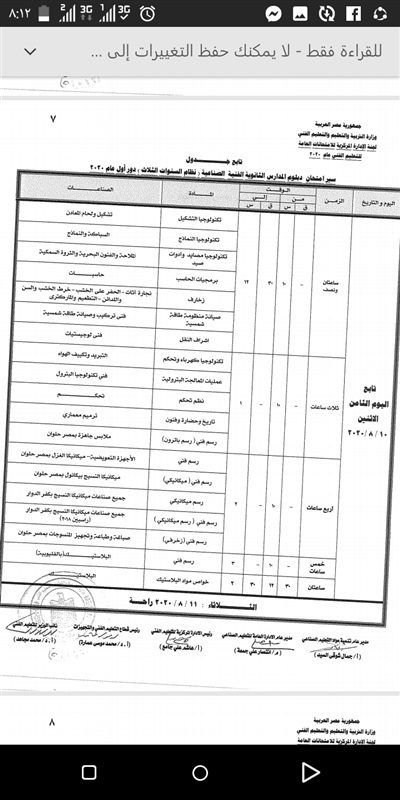 ٨:١٢
للقراءة فقط - لا يمكنك حفظ التغييرات إلى ...
٧
جمهورية مصر العربية
وزارة التربية والتعليم والتعليم الفني
لجنة الإدارة المركزية للامتحانات العامة
للتعليم الفني عام ٢٠٢٠
تابع جــدول
سير امتحان دبلوم المدارس الثانوية الفنية الصناعية ( نظام السنوات الثلاث ) دور أول عام ٢٠٢٠
اليوم والتاريخ
الزمن
الوقت
من
إلى
ق
س
ق
س
المادة
الصناعات
تابع
اليوم الثامن
الاثنين
١٠ / ٨ / ٢٠٢٠
ساعتان ونصف
-
١٠
٣٠
١٢
تكنولوجيا التشكيل
تشكيل ولحام المعادن
تكنولوجيا النماذج
السباكة والنماذج
تكنولوجيا مصايد وأدوات صيد
الملاحة والفنون البحرية والثروة السمكية
برمجيات الحاسب
حاسبات
زخارف
نجارة أثاث - الحفر على الخشب - خرط الخشب والسن واللدائن - التطعيم والماركترى
صيانة منظومة طاقة شمسية
فنى تركيب وصيانة طاقة شمسية
اشراف النقل
فنى لوجيستيات
ثلاث ساعات
-
١٠
-
١
تكنولوجيا كهرباء وتحكم
التبريد وتكييف الهواء
عمليات المعالجة البترولية
فني تكنولوجيا البترول
نظم تحكم
تحكم
تاريخ وحضارة وفنون
ترميم معماري
رسم فني (رسم باترون)
ملابس جاهزة بمصر حلوان
أربع ساعات
-
١٠
-
٢
رسم فني
الأجهزة التعويضية - ميكانيكا الغزل بمصر حلوان
رسم فني ( ميكانيكي)
ميكانيكا النسيج بيانول بمصر حلوان
رسم ميكانيكي
جميع صناعات ميكانيكا النسيج بكفر الدوار
رسم فني ( رسم ميكانيكي )
جميع صناعات ميكانيكا النسيج بكفر الدوار (راسبين ٢٠١٨)
رسم فني (زخرفي)
صباغة وطباعة وتجهيز المنسوجات بمصر حلوان
خمس ساعات
-
١٠
-
٣
رسم فني
البلاستيك (بالقليوبية)
ساعتان
٣٠
١٢
٣٠
٢
خواص مواد البلاستيك
البلاستيك
الثلاثاء : ١١ / ٨ / ٢٠٢٠ راحة
مدير عام تنمية مواد التعليم الصناعي
مدير عام الإدارة العامة للتعليم الصناعي
رئيس الإدارة المركزية للتعليم الفني
رئيس قطاع التعليم الفني والتجهيزات
نائب الوزير للتعليم الفني
(أ / جمال شوقي السيد)
(م / انتصار علي جمعة)
(أ / هاشم علي جامع)
(أ.د / محمد موسى عمارة)
(أ.د / محمد مجاهد)
٨
جمهورية مصر العربية
وزارة التربية والتعليم والتعليم الفني
لجنة الإدارة المركزية للامتحانات العامة